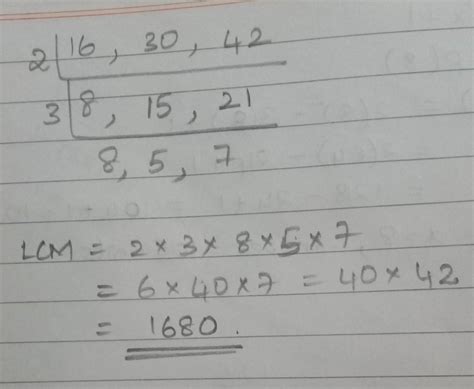 2 | 16, 30, 42
3 | 8, 15, 21
8, 5, 7
LCM = 2 × 3 × 8 × 5 × 7
= 6 × 40 × 7 = 40 × 42
= 1680.